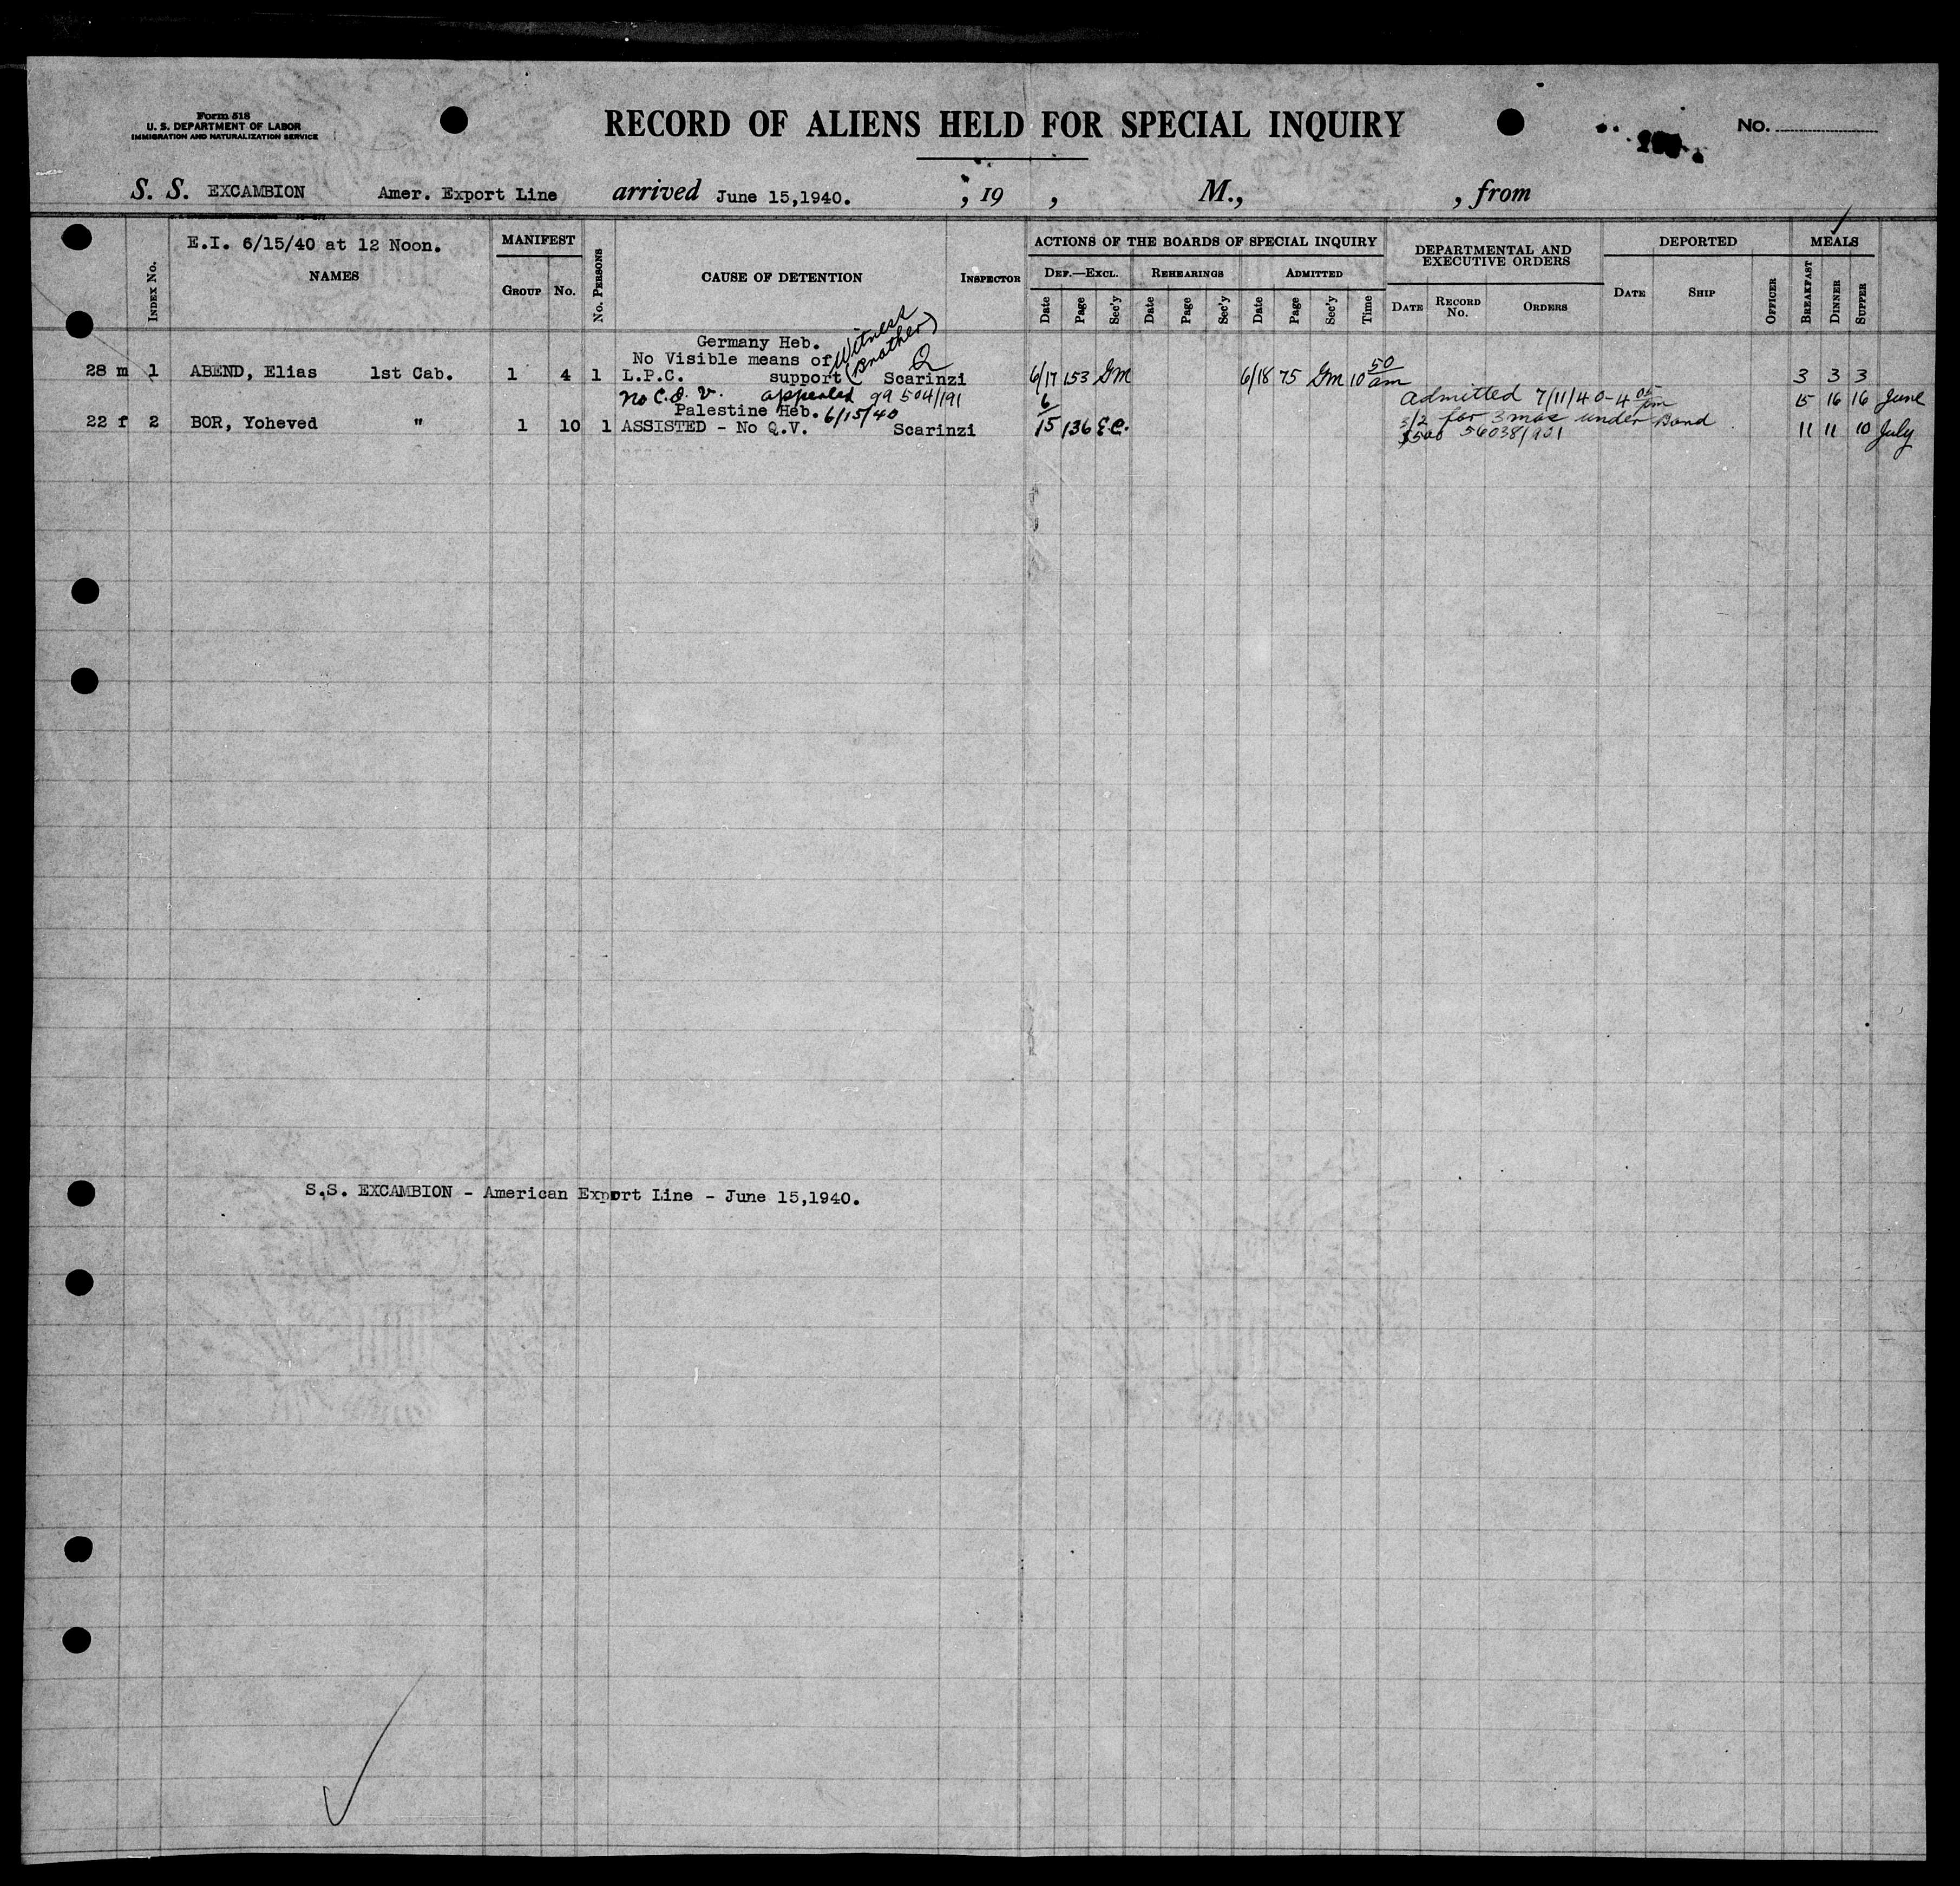 Form 518
U. S. DEPARTMENT OF LABOR
IMMIGRATION AND NATURALIZATION SERVICE
RECORD OF ALIENS HELD FOR SPECIAL INQUIRY
No.
S. S. EXCAMBION Amer. Export Line arrived June 15,1940. , 19 , M., , from
E.I. 6/15/40 at 12 Noon.
INDEX No. NAMES MANIFEST GROUP No. No. PERSONS CAUSE OF DETENTION INSPECTOR
ACTIONS OF THE BOARDS OF SPECIAL INQUIRY
DEF.—EXCL. REHEARINGS ADMITTED
Date Page Sec'y Date Page Sec'y Date Page Sec'y Time
DEPARTMENTAL AND
EXECUTIVE ORDERS
DATE RECORD No. ORDERS
DEPORTED
DATE SHIP OFFICER
MEALS
BREAKFAST DINNER SUPPER
Germany Heb. Witness
No Visible means of (Brother)
28 m 1 ABEND, Elias 1st Cab. 1 4 1 L.P.C. support Scarinzi 6/17 153 GM 6/18 75 GM 10 50 am 3 3 3
No appealed 99504/191 admitted 7/11/40-4 05 pm 15 16 16 June
Palestine Heb. 6/15/40 3/2 for 3 mos under Bond
22 f 2 BOR, Yoheved " 1 10 1 ASSISTED - No Q.V. Scarinzi 6/15 136 E.C. $500 56038/901 11 11 10 July
S.S. EXCAMBION - American Export Line - June 15,1940.